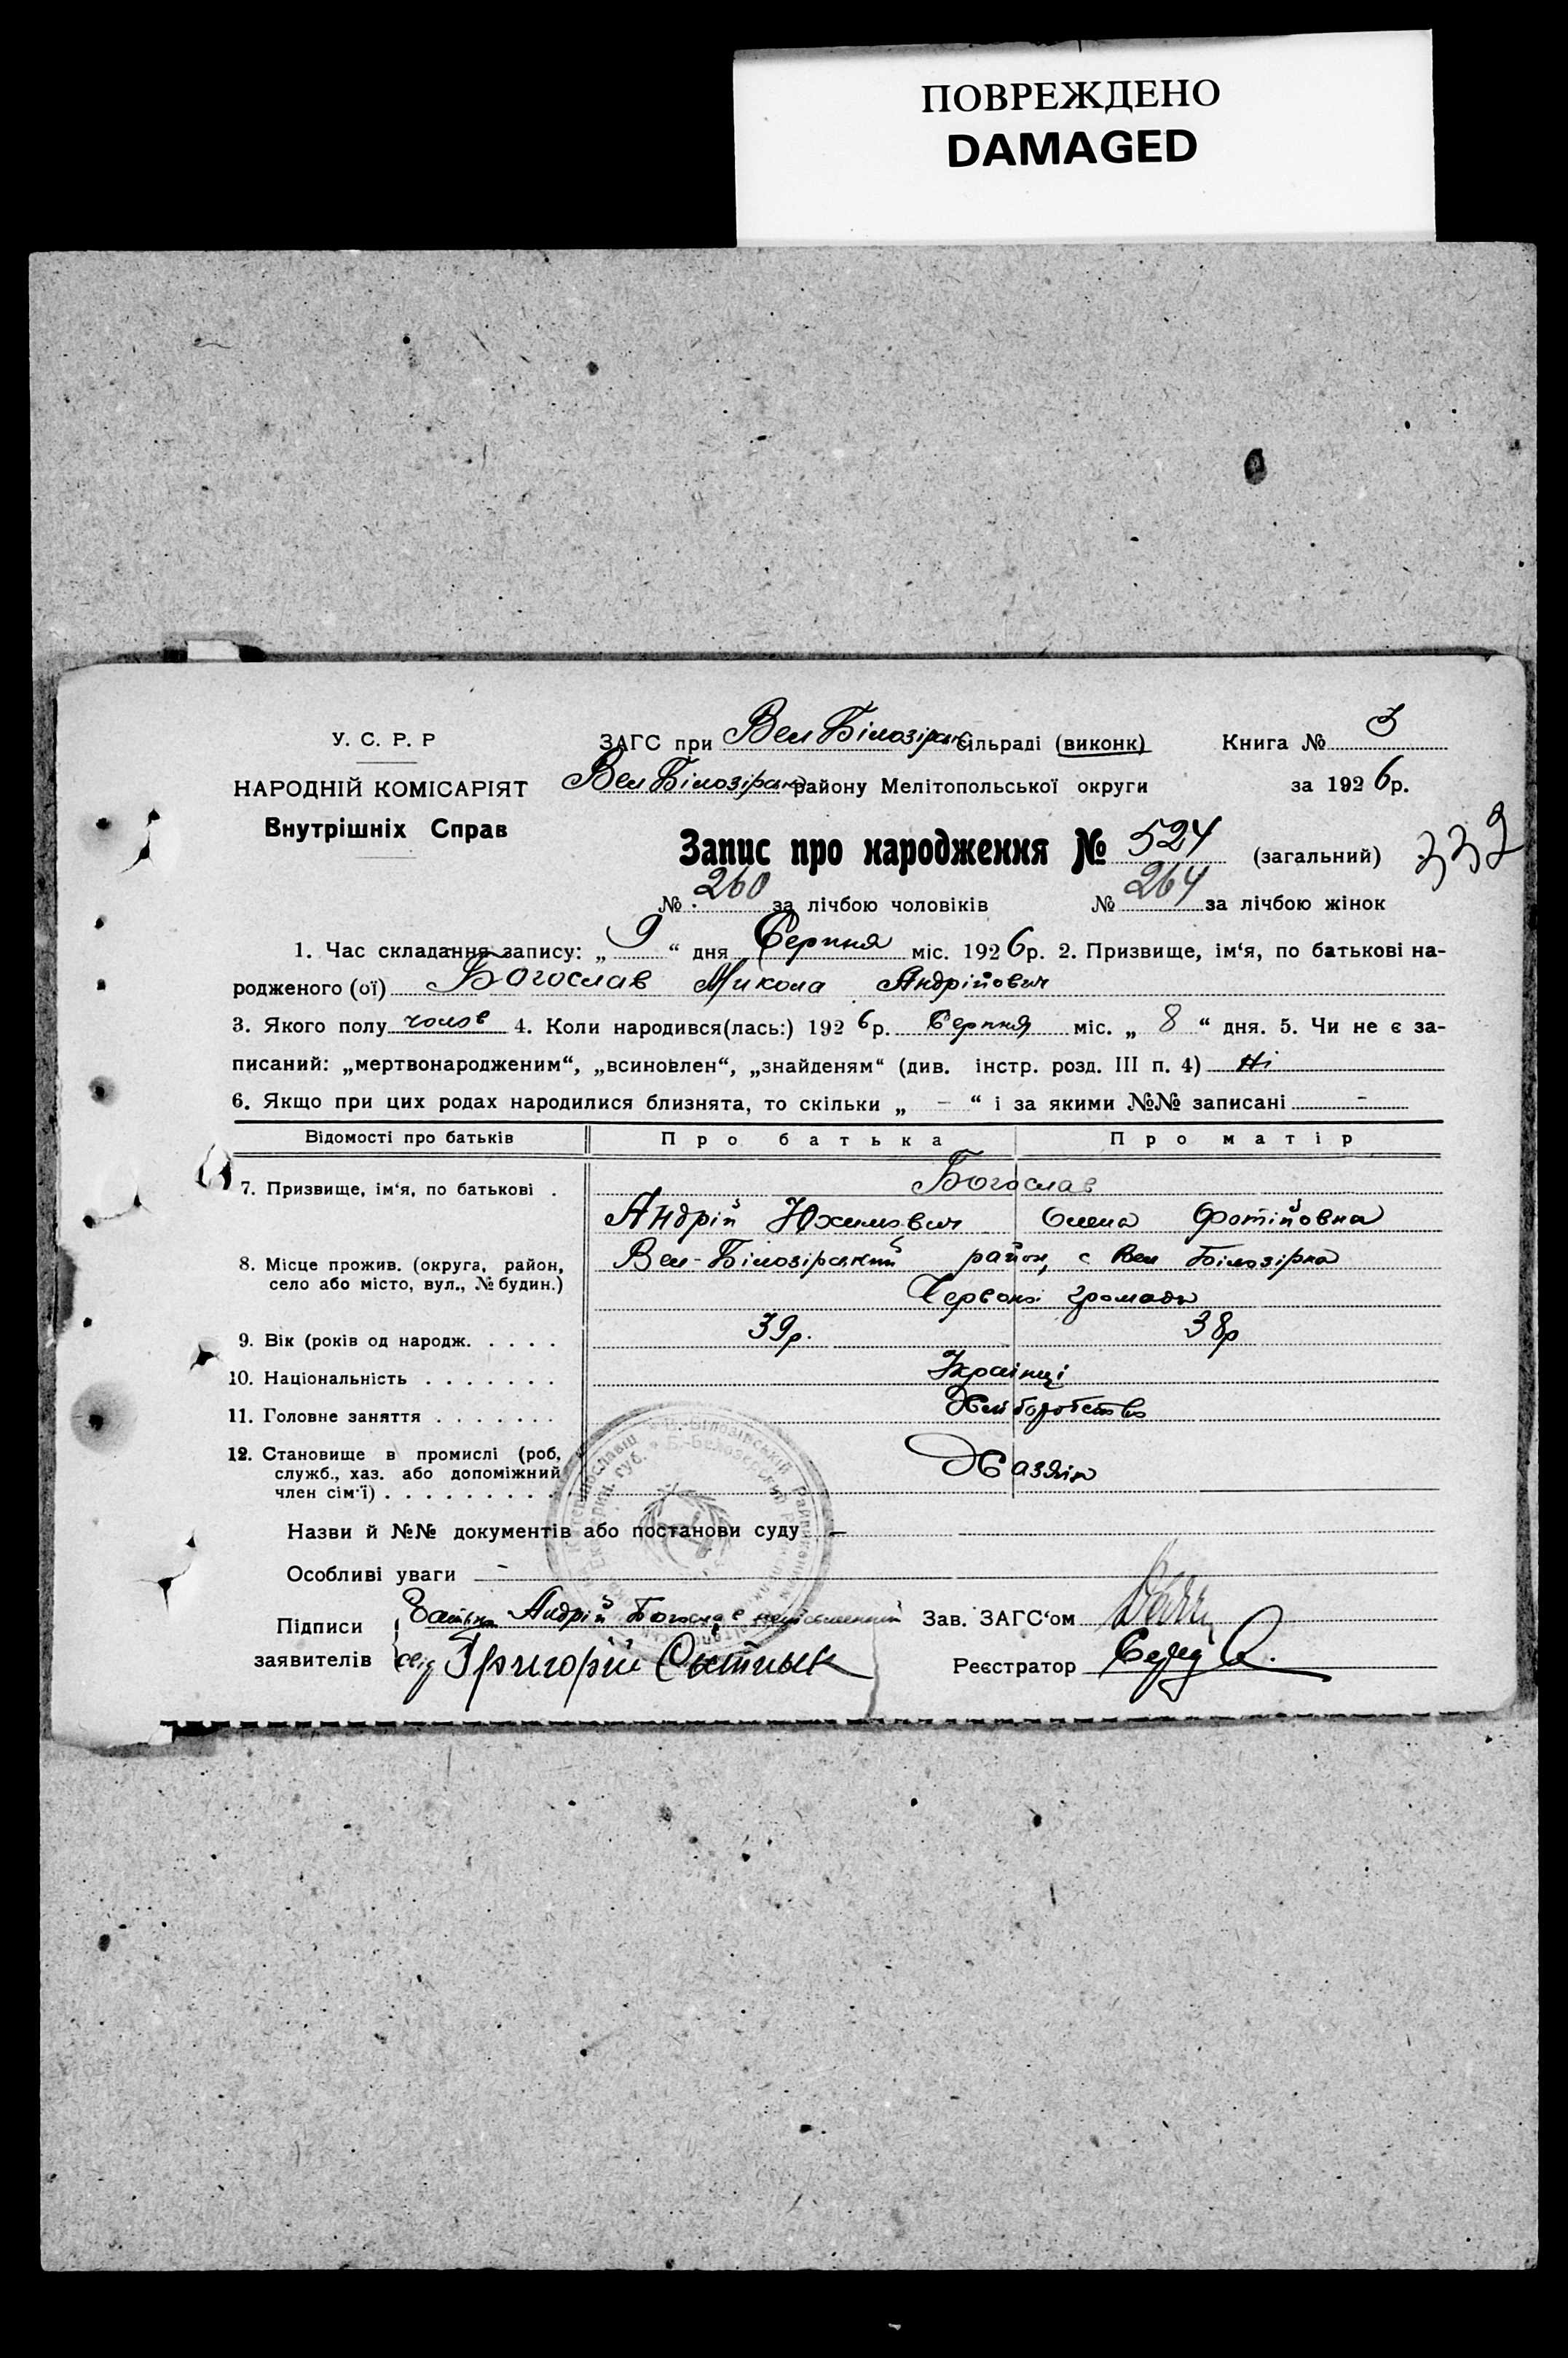 ПОВРЕЖДЕНО
DAMAGED
У. С. Р. Р
НАРОДНІЙ КОМІСАРІЯТ
Внутрішніх Справ
ЗАГС при Вел Білозірск сільраді (виконк)
Вел Білозірск району Мелітопольської округи
Книга № 3
за 1926р.
Запис про народження № 524 (загальний) 332
№ 260 за лічбою чоловіків № 264 за лічбою жінок
1. Час складання запису: „ 9 “ дня Серпня міс. 1926р. 2. Призвище, ім‘я, по батькові на-
родженого (ої) Богослав Микола Андрійович
3. Якого полу чолов 4. Коли народився(лась:) 1926р. Серпня міс. „ 8 “ дня. 5. Чи не є за-
писаний: „мертвонародженим“, „всиновлен“, „знайденям“ (див. інстр. розд. III п. 4) Ні
6. Якщо при цих родах народилися близнята, то скільки „ – “ і за якими №№ записані -
Відомості про батьків Про батька Про матір
7. Призвище, ім‘я, по батькові . Богослав
Андрій Юхимович Олена Фотійовна
8. Місце прожив. (округа, район, село або місто, вул., № будин.) Вел-Білозірський район, с Вел Білозірка
Червоної громади
9. Вік (років од народж. . . . . 39р. 38р
10. Національність . . . . . . . Українці
11. Головне заняття . . . . . . . Хліборобство
12. Становище в промислі (роб, служб., хаз. або допоміжний член сім‘ї) . . . . . . . . . Хазяїн
Назви й №№ документів або постанови суду –
Особливі уваги -
Підписи заявителів Батько Андрій Богослав неписьменний
свід Григорій Сытнык
Зав. ЗАГС‘ом
Реєстратор